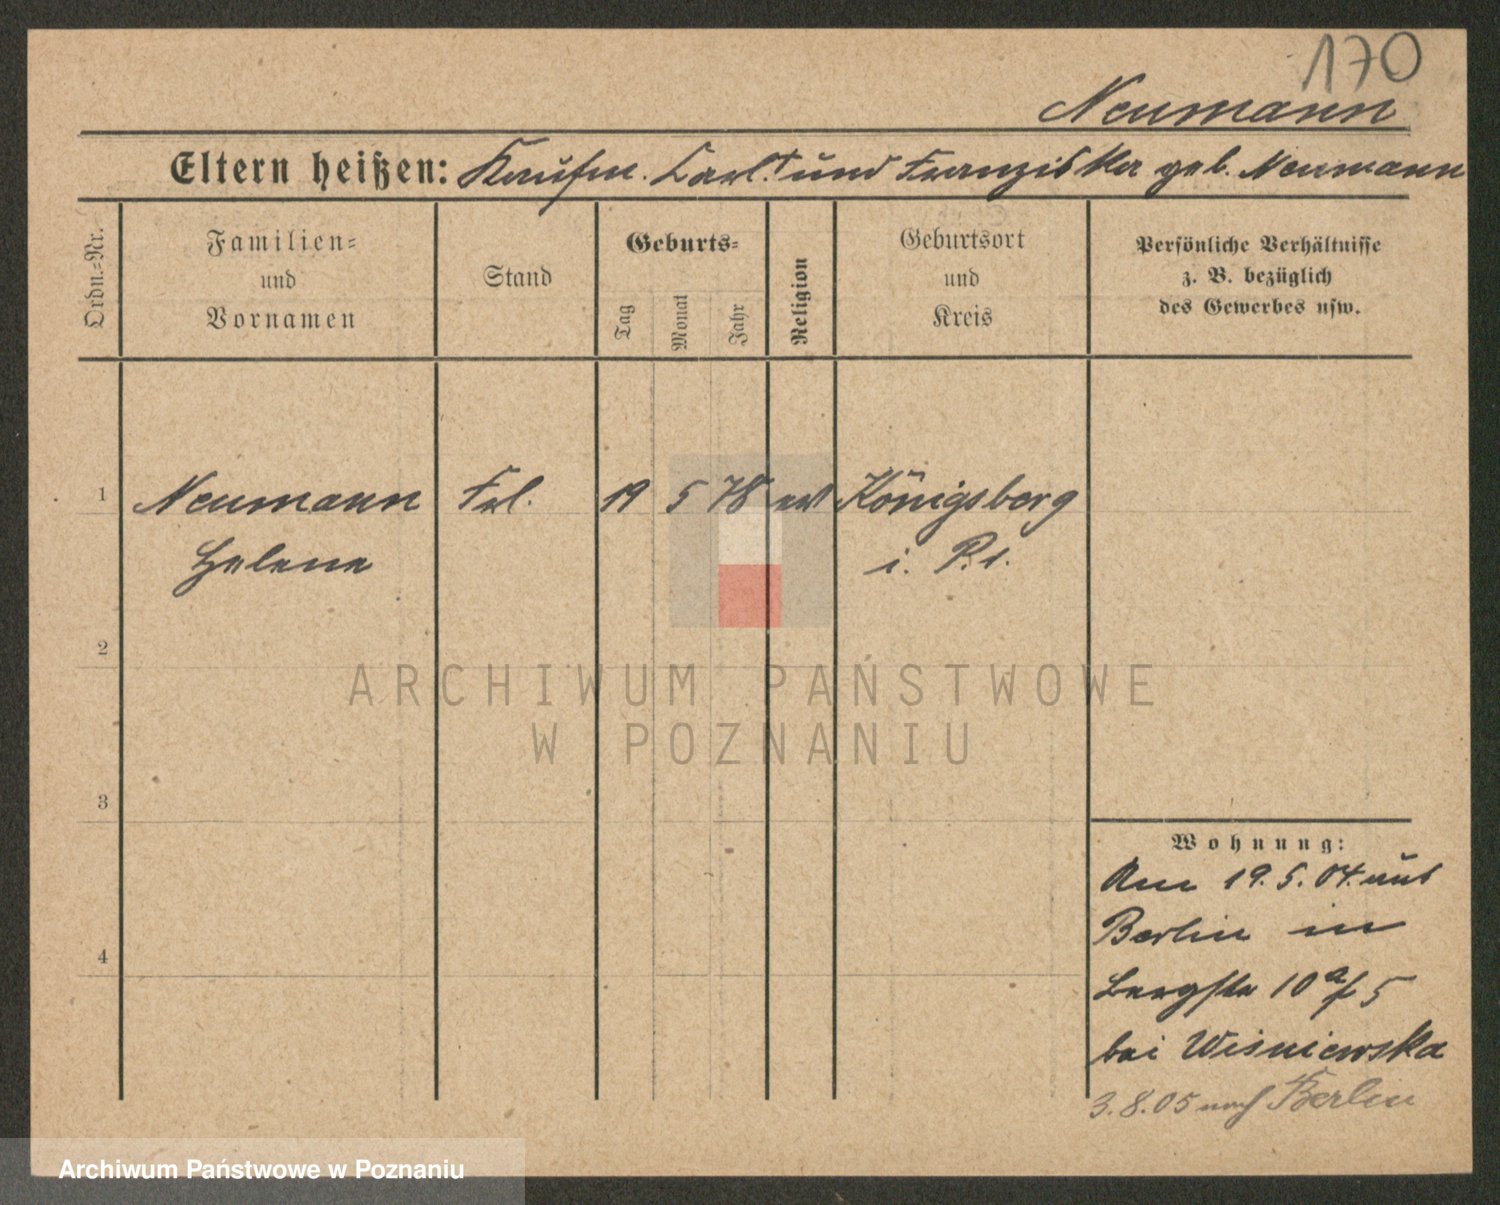 170
Neumann
Eltern heißen: Kaufm. Carl † und Franziska geb. Neumann
Ordn.-Nr.
Familien- und Vornamen
Stand
Geburts-
Tag
Monat
Jahr
Religion
Geburtsort und Kreis
Persönliche Verhältnisse
z. B. bezüglich
des Gewerbes usw.
1 Neumann Frl. 19 5 78 Königsberg
Helene i. P.
2
3
4
Wohnung:
Am 19.5.04. aus
Berlin in
Bergstr 10 5
bei Wisniewska
3.8.05 nach Berlin
ARCHIWUM PAŃSTWOWE
W POZNANIU
Archiwum Państwowe w Poznaniu